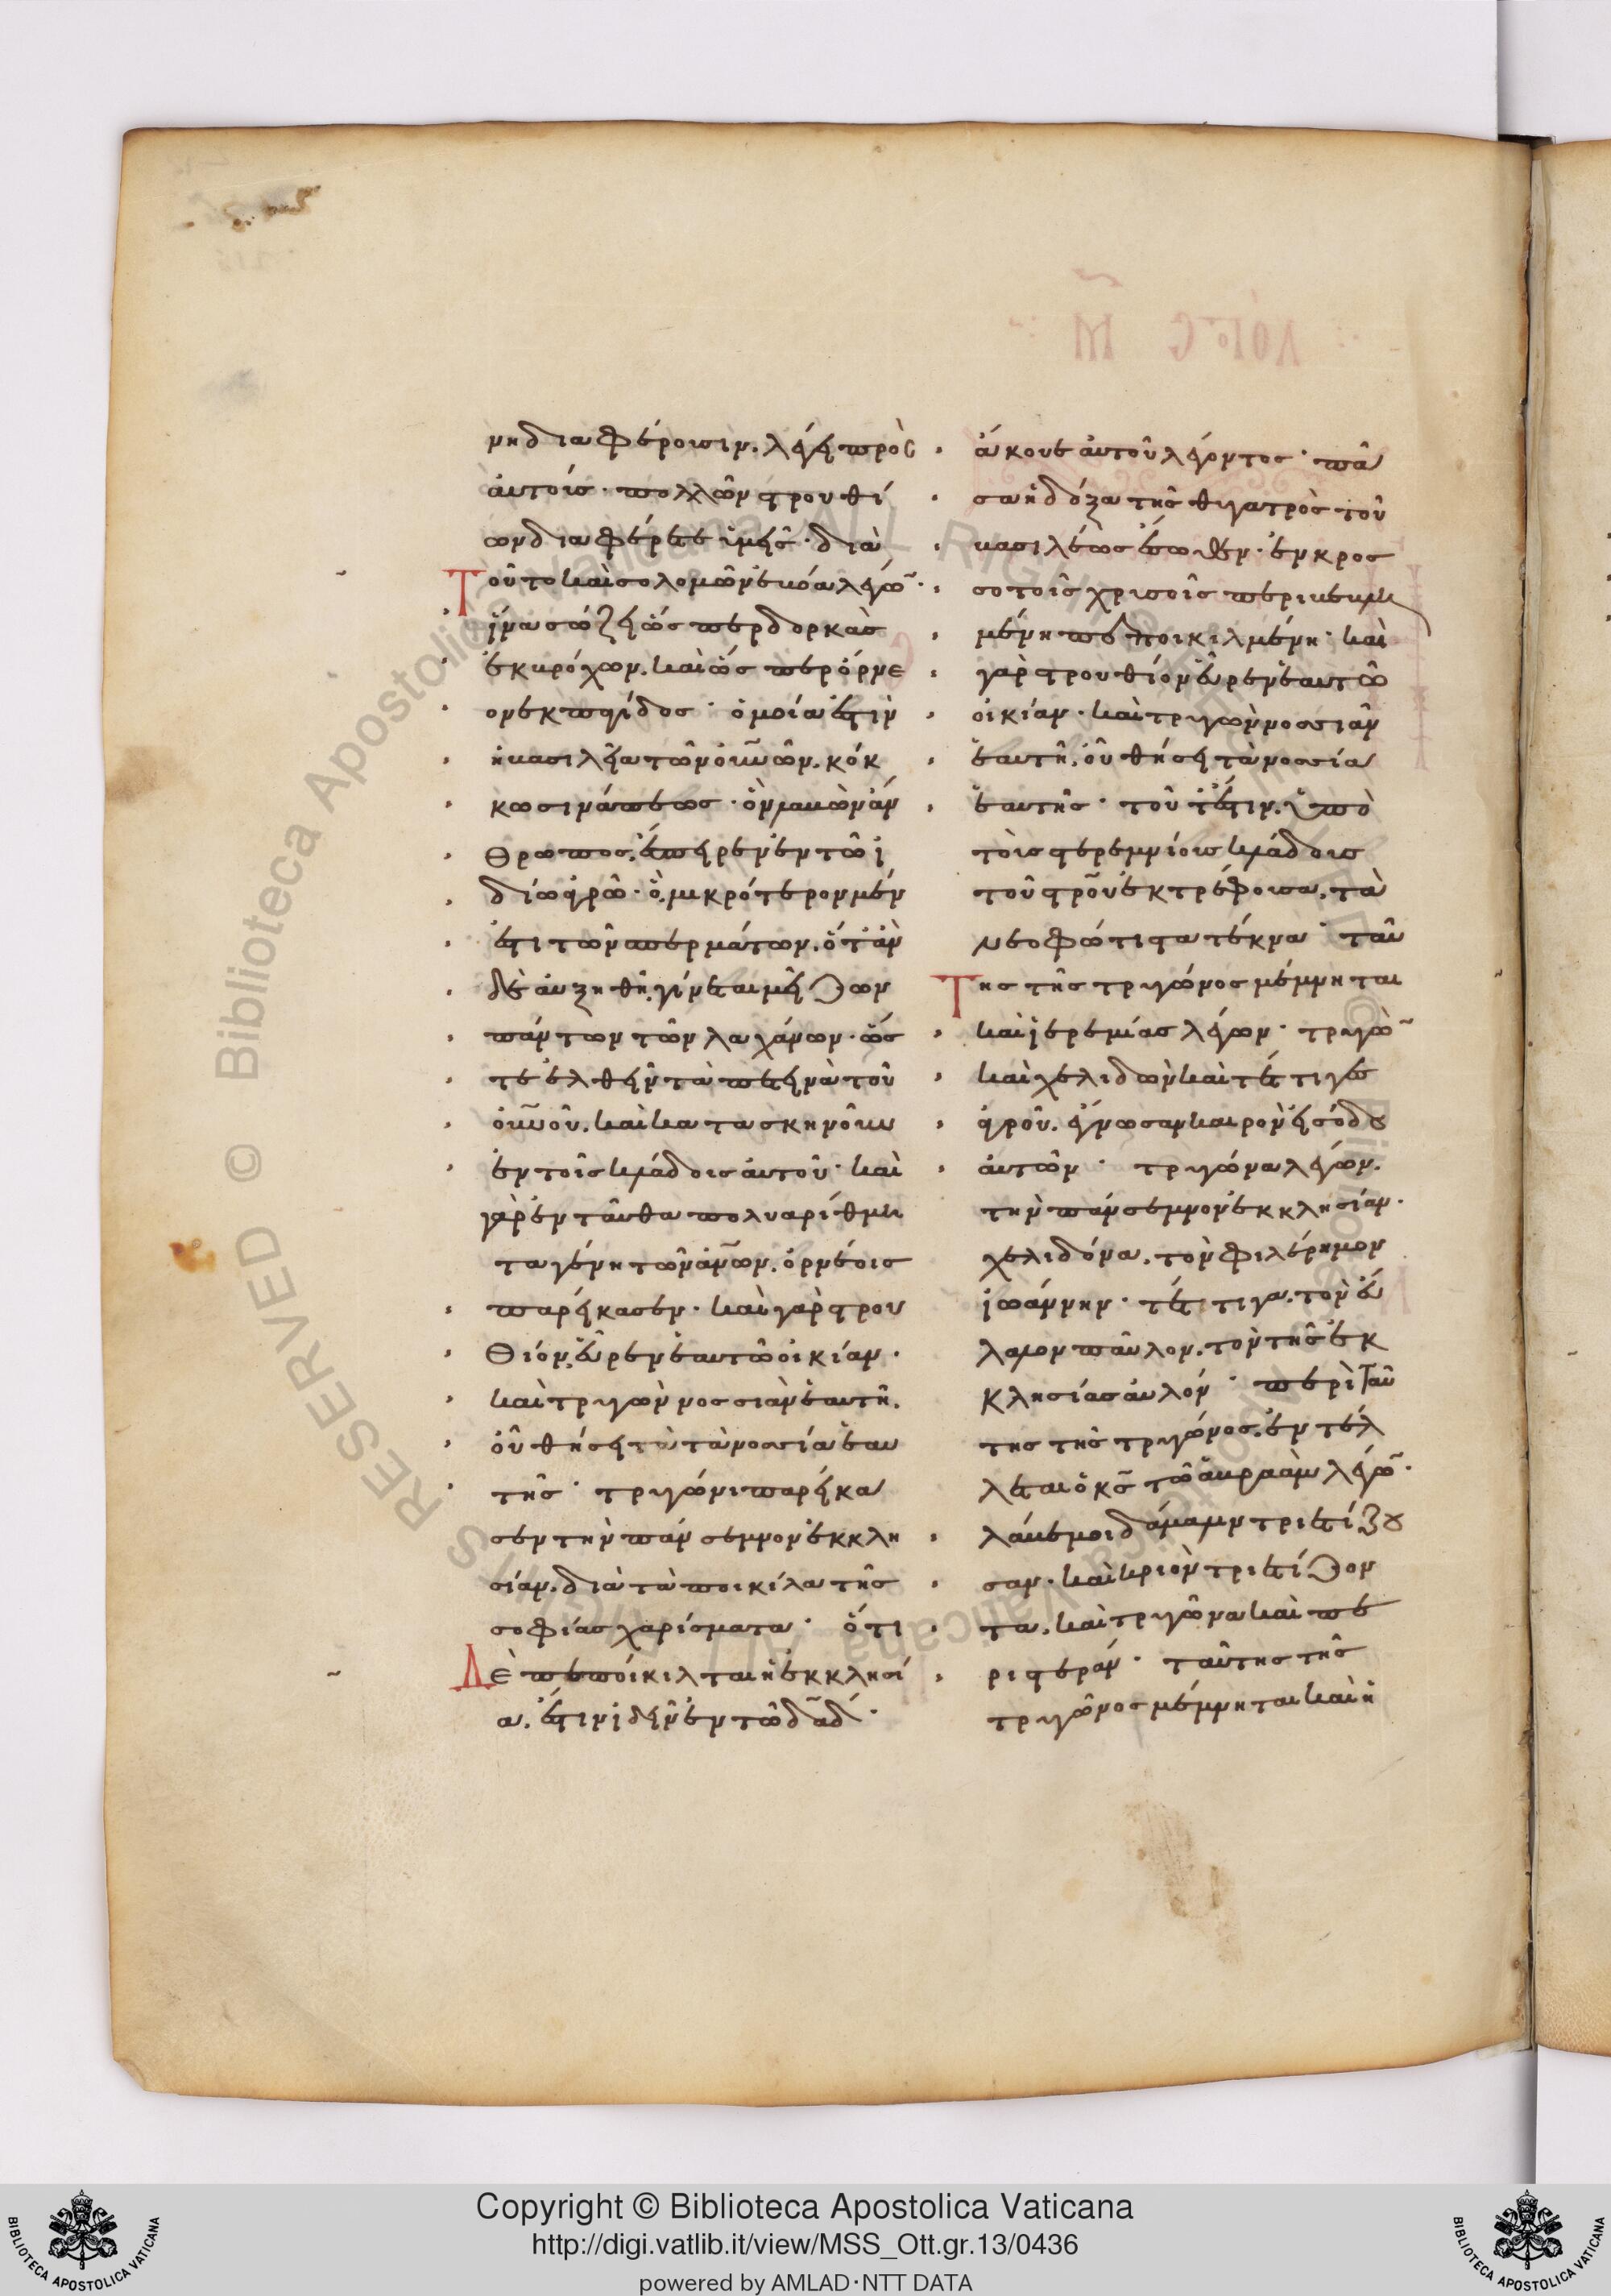 νηδιαφέρουσιν. λέγει πρὸς
αὐτοὺς· πολλῶν στρουθί
ων διαφέρετε ὑμεῖς· διὰ
Τοῦτο καὶ σολομῶν ἐβόα λέγω̅·
ἵνα σώζει ὥσπερ δορκὰς
ἐκ βρόχων. καὶ ὥσπερ ὄρνε
ον ἐκ παγίδος· ὁμοία ἐστὶν
ἡ βασιλεία τῶν οὐν̅ων. κόκ
κω σινάπεως· ὃν λαβὼν ἄν
θρωπος. ἔσπειρεν ἐν τῶ ἰ
δίω ἀγρῶ· ὃ, μικρότερον μέν
ἐστι τῶν σπερμάτων. ὅταν
δὲ αὐξηθῆ, γίνεται μεῖζων
πάντων τῶν λαχάνων· ὥσ
τε ἐλθεῖν τὰ πετεινὰ τοῦ
οὐν̅ου. καὶ κατασκηνοῦν
ἐν τοῖς κλάδοις αὐτοῦ· καὶ
γὰρ ἐνταῦθα πολυαρίθμη
τα γένη τῶν ἀν̅ων. ὀρνέοις
παρείκασεν· καὶ γὰρ στρου
θίον, εὗρεν ἑαυτῶ οἰκίαν·
καὶ τρυγὼν νοσσιὰν ἑαυτῆ.
οὗ θήσει τὰ νοσσία ἑαυ
τῆς· τρυγόνι παρείκα
σεν τὴν πάνσεμνον ἐκκλη
σίαν. διὰ τὰ ποικίλα τῆς
σοφίας χαρίσματα· ὅτι
Δὲ πεποίκιλται ἡ ἐκκλησί
α. ἔστιν ἰδεῖν ἐν τῶ δα̅δ·
ἄκουε αὐτοῦ λέγοντος· πᾶ
σα ἡ δόξα τῆς θυγατρὸς τοῦ
βασιλέως ἔσωθεν· ἐν κροσ
σοτοῖς χρυσοῖς περιβεβλη
μένη πεποικιλμένη· καὶ
γὰρ στρουθίον εὗρεν ἑαυτῶ
οἰκίαν· καὶ τρυγὼν νοσσιὰν
ἑαυτῆ, οὗ θήσει τὰ νοσσία
ἑαυτῆς· τοῦτ' ἔστιν. ὑπὸ
τοῖς στερεμνίοις κλάδοις
τοῦ στρ̅ου ἐκτρέφουσα, τὰ
νεοφώτιστα τέκνα· ταύ
Της τῆς τρυγόνος μέμνηται
καὶ ἱερεμίας λέγων· τρυγὼ̅
καὶ χελιδὼν καὶ τέττιγες
ἀγροῦ. ἔγνωσαν καιρὸν εἰσόδου
αὐτῶν· τρυγόνα λέγων.
τὴν πάνσεμνον ἐκκλησίαν·
χελιδόνα. τὸν φιλέρημον
ἰωάννην· τέττιγα. τὸν εὔ
λαλον παῦλον. τὸν τῆς ἐκ
κλησίας αὐλόν· περὶ ταύ
της τῆς τρυγόνος. ἐντέλ
λεται ὁ κς̅ τῶ ἀβραὰμ λέγω̅·
λάβε μοι δάμαλιν τριετίζου
σαν· καὶ κριὸν τριετίζον
τα. καὶ τρυγόνα καὶ πε
ριστεράν· ταύτης τῆς
τρυγόνος μέμνηται καὶ ἡ
Copyright © Biblioteca Apostolica Vaticana
http://digi.vatlib.it/view/MSS_Ott.gr.13/0436
powered by AMLAD·NTT DATA